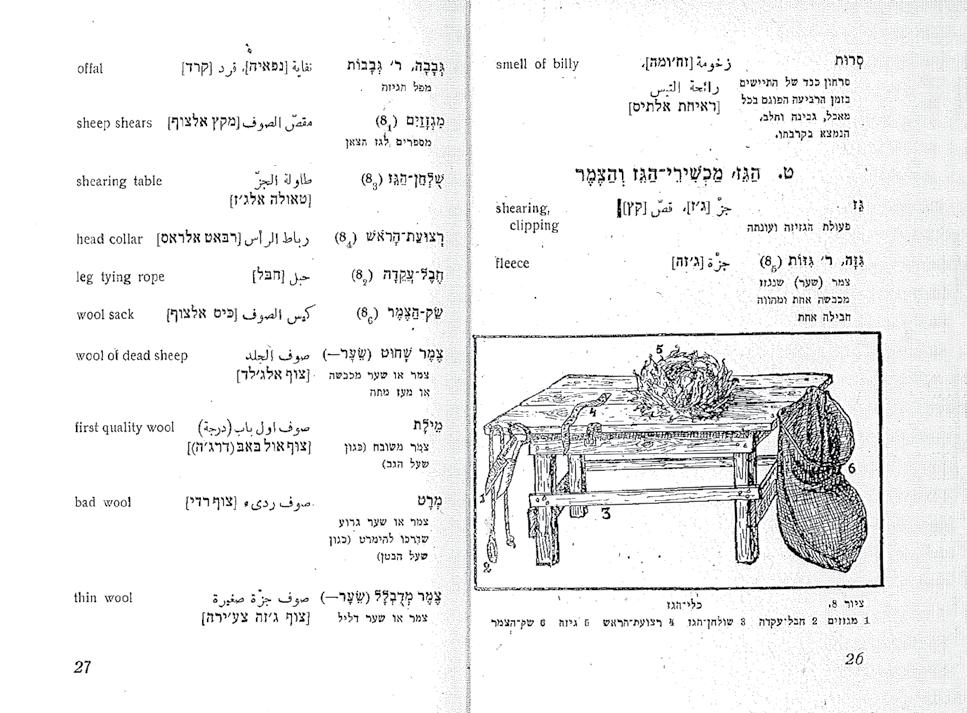 סָרוּת زخومة [זח'ומה]، smell of billy
סרחון כבד של התיישים رائحة التيس
בזמן הרביעה הפוגם בכל [ראיחת אלתיס]
מאכל, גבינה וחלב,
הנמצא בקרבתו.
ט. הַגֵּז, מַכְשִׁירֵי־הַגֵּז וְהַצֶּמֶר
גֵּז جزّ [ג'ז]، قصّ [קץ] shearing,
פעולת הגזיזה ועונתה clipping
גִּזָּה, ר' גִּזּוֹת (8₅) جزّة [ג'זה] fleece
צמר (שער) שנגזז
מכבשה אחת ומהווה
חבילה אחת
5
4
6
1
3
2
ציור 8. כלי־הגז
1 מגזזים 2 חבל־עקדה 3 שולחן־הגז 4 רצועת־הראש 5 גיזה 6 שק־הצמר
26
גְּבָבָה, ר' גְּבָבוֹת نفاية [נפאיה]، قرد [קרד] offal
מפל הגיזה
מִגְזָזַיִם (8₁) مقصّ الصوف [מקץ אלצוף] sheep shears
מספרים לגז הצאן
שֻׁלְחַן־הַגֵּז (8₃) طاولة الجزّ shearing table
[טאולה אלג'ז]
רְצוּעַת־הָרֹאשׁ (8₄) رباط الرأس [רבאט אלראס] head collar
חֶבֶל־עֲקֵדָה (8₂) حبل [חבל] leg tying rope
שַׂק־הַצֶּמֶר (8₆) كيس الصوف [כיס אלצוף] wool sack
צֶמֶר שָׁחוּט (שֵׂעָר—) صوف الجلد wool of dead sheep
צמר או שער מכבשה [צוף אלג'לד]
או מעז מתה
מֵילָת صوف اول باب (درجة) first quality wool
צמר משובח (כגון [צוף אול באב (דרג'ה)]
שעל הגב)
מְרָט صوف رديء [צוף רדי] bad wool
צמר או שער גרוע
שדרכו להימרט (כגון
שעל הבטן)
צֶמֶר מְדֻבְלָל (שֵׂעָר—) صوف جزّة صغيرة thin wool
צמר או שער דליל [צוף ג'זה צע'ירה]
27